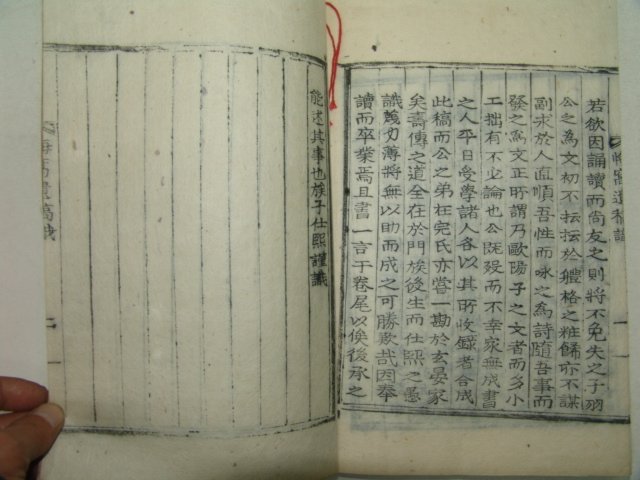 若欲因誦讀而尚友之則將不免失之子羽
公之爲文初不抎抎於軆格之粧餙亦不謀
副求於人直順吾性而咏之爲詩隨吾事而
發之爲文正所謂乃歐陽子之文者而多小
工拙有不必論也公旣歿而不幸家無成書
之人平日受學諸人各以其所收錄者合成
此稿而公之弟在完氏亦嘗一勘於玄晏家
矣壽傳之道全在於門族後生而仕熙之愚
識蔑力薄將無以助而成之可勝歎哉因奉
讀而卒業焉且書一言于卷尾以俟後承之
能述其事也族子仕熙謹識